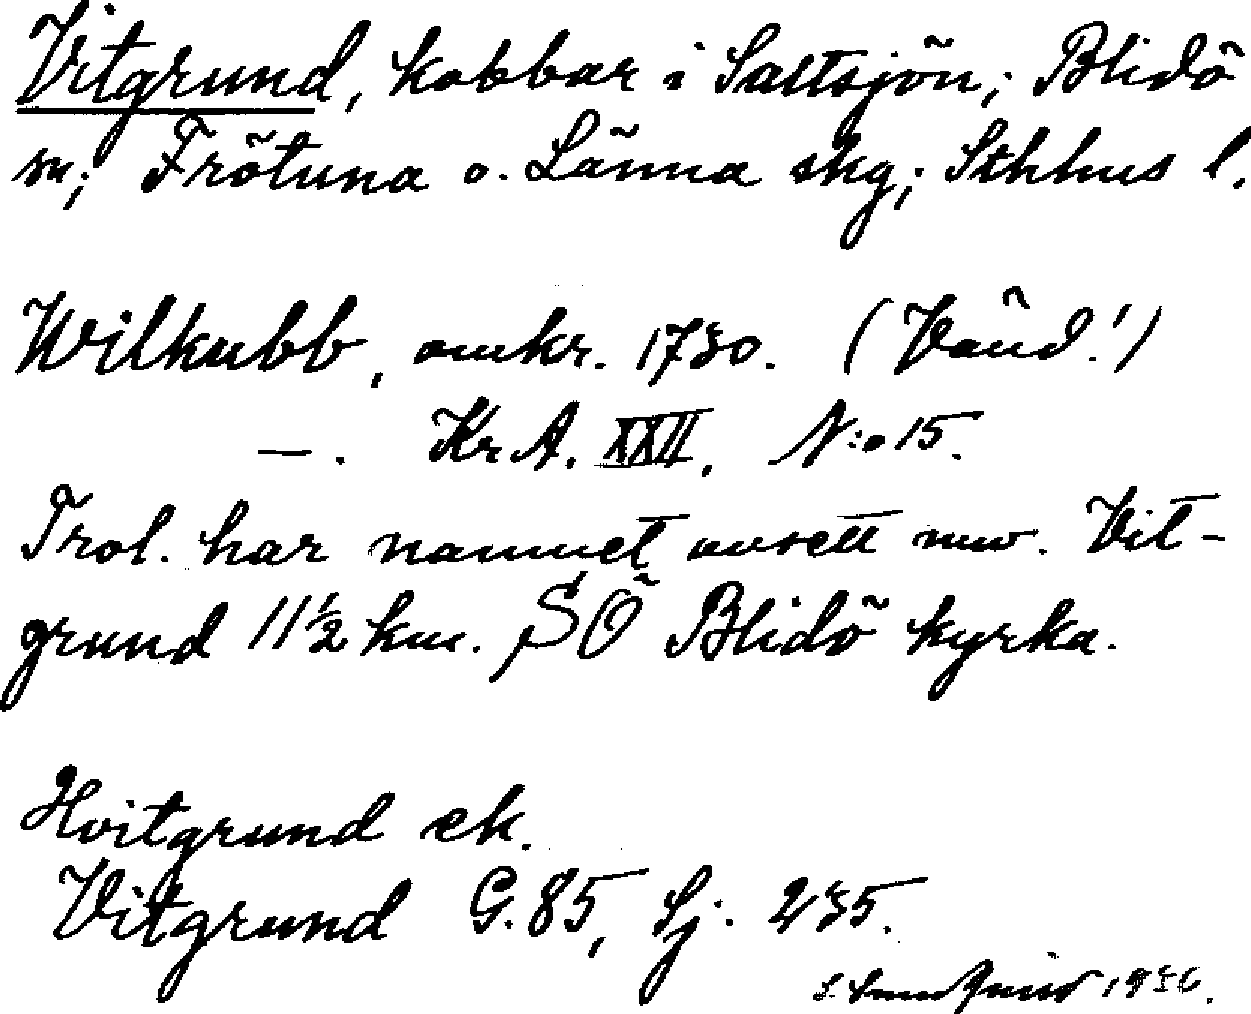 Vitgrund, kobbar i Saltsjön; Blidö
sn; Frötuna o. Länna skg; Sthlms l.
Wilkubb, omkr. 1730. (Vänd!)
—. Kr.A. XXII. N:o 15.
Trol. har namnet avsett nuv. Vit-
grund 11½ km. SÖ Blidö kyrka.
Hvitgrund ek.
Vitgrund G. 85, Sj. 235.
1936.